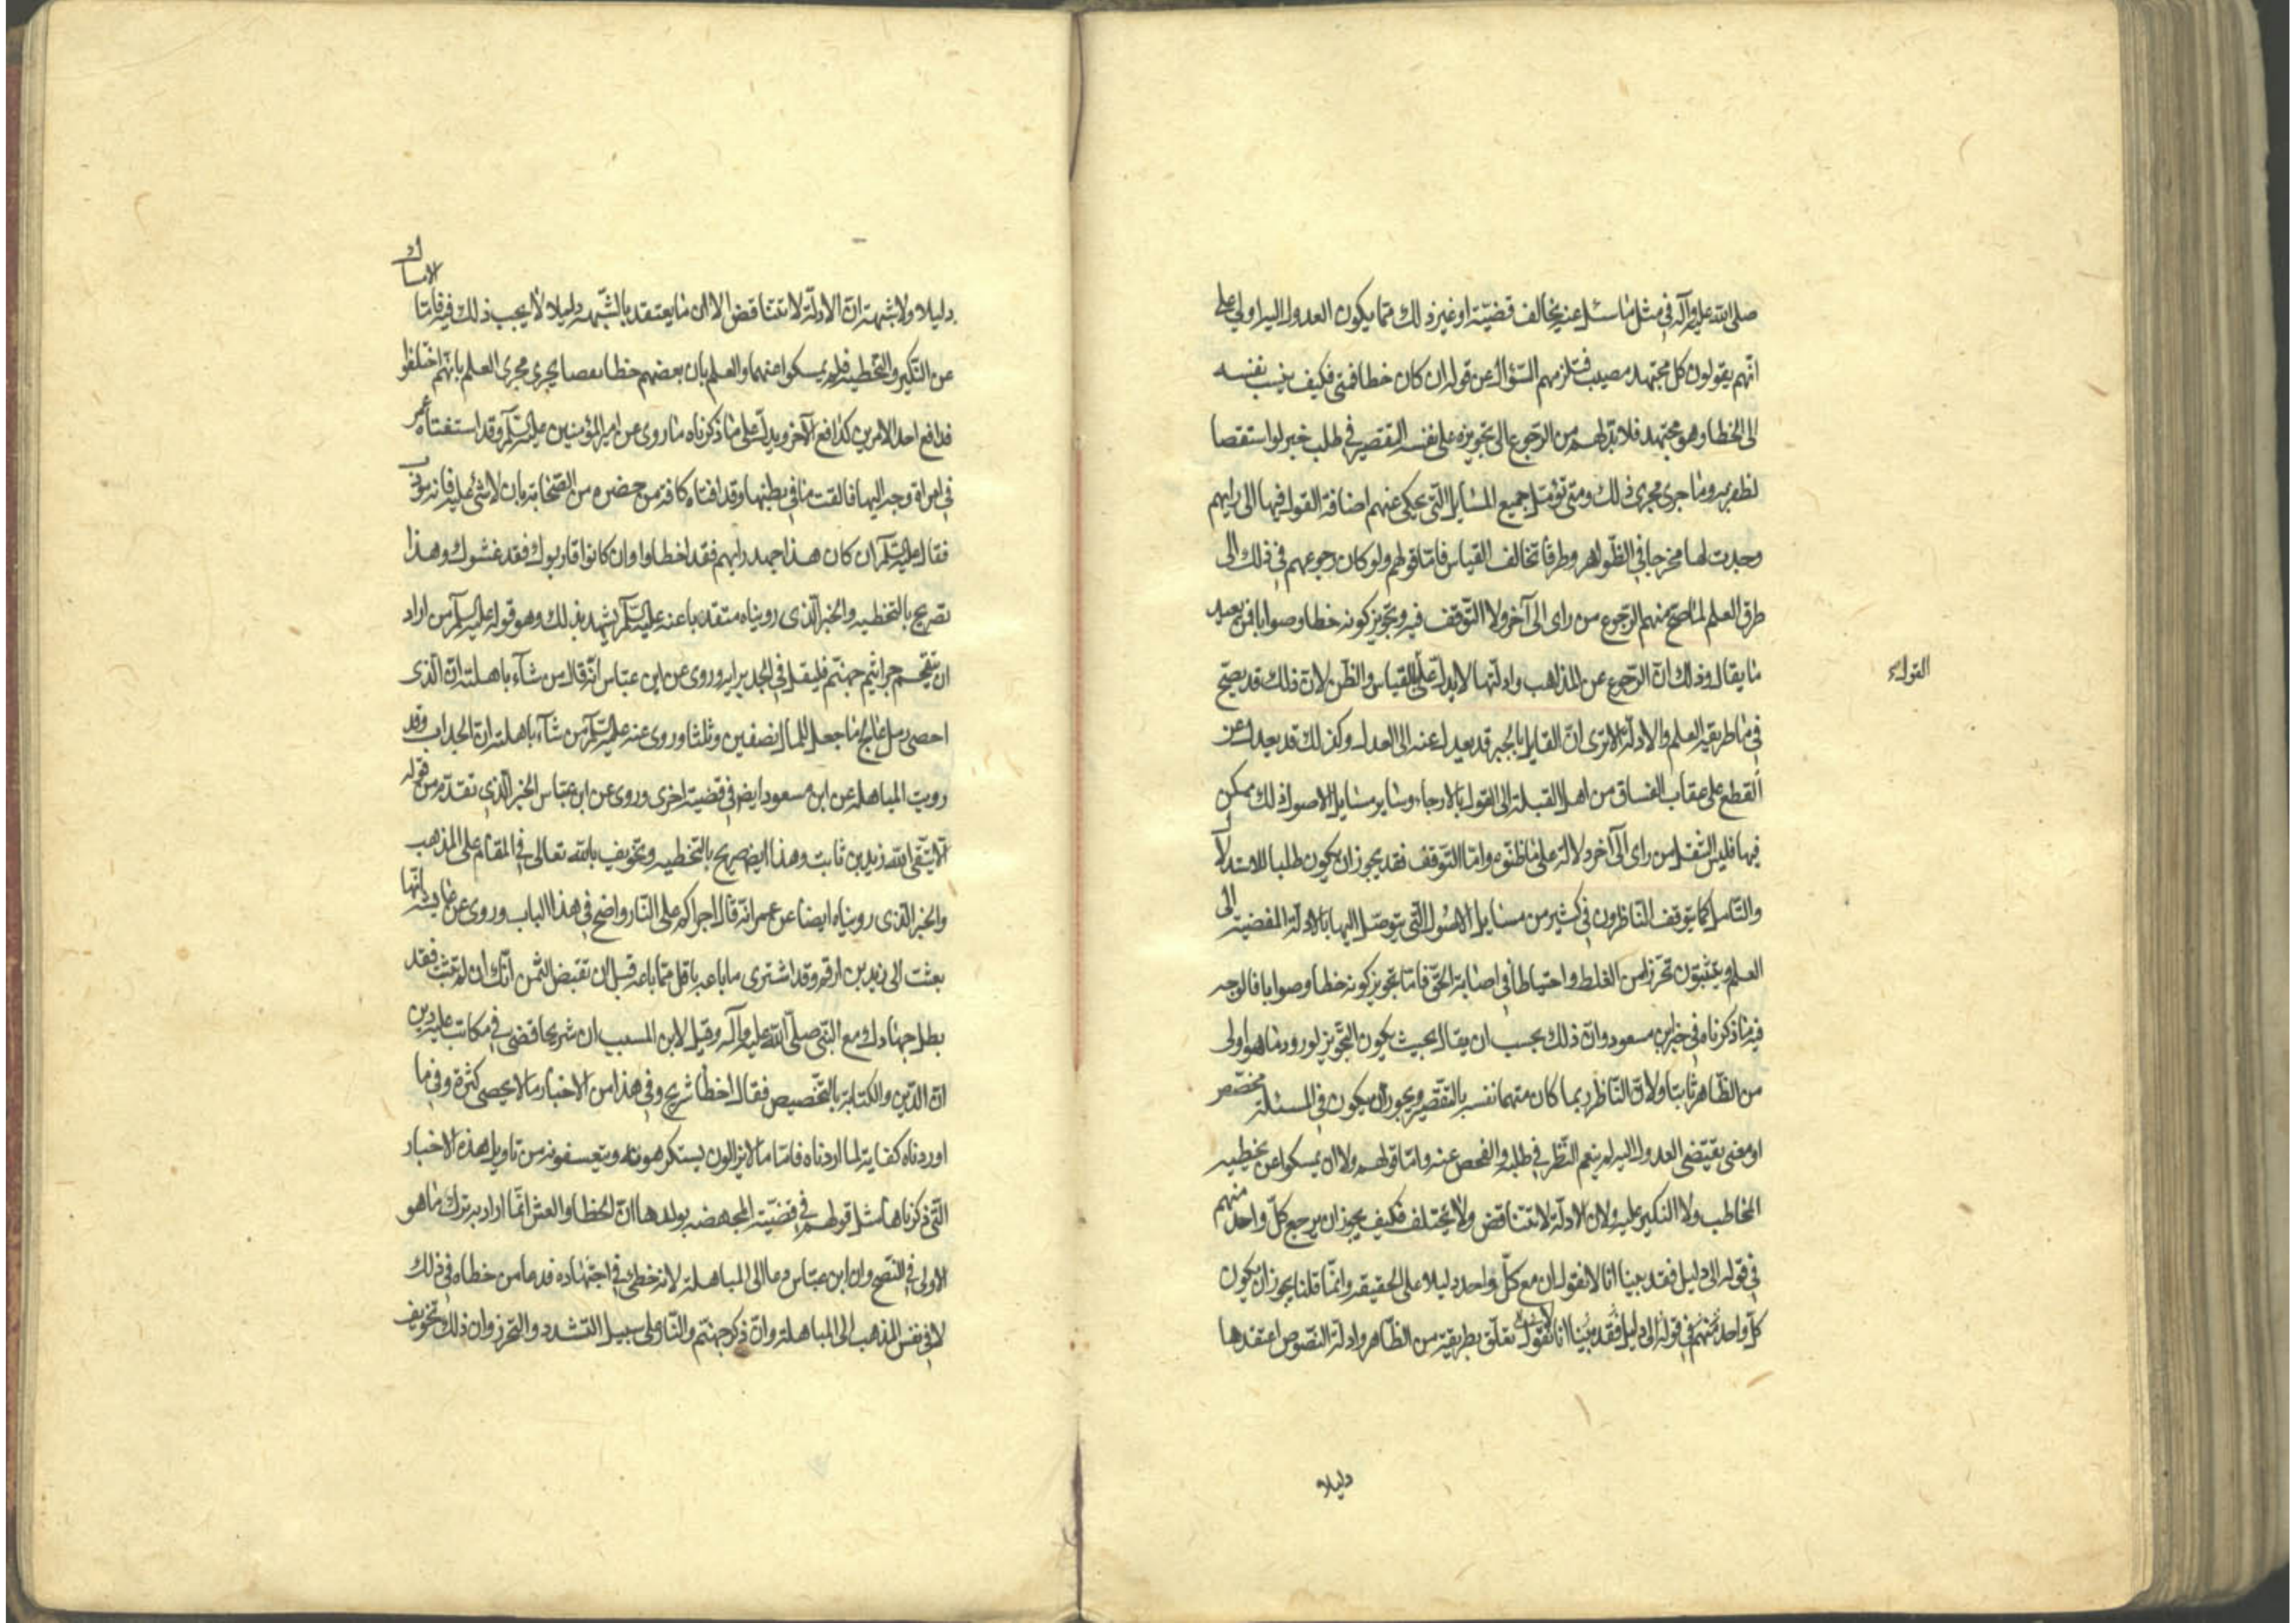 صلى الله عليه وآله في مثل ما سئل عنه يخالف قضيته او غير ذلك مما يكون العدول اليه اولى على
انهم يقولون كل مجتهد مصيب فتلزمهم السؤال عن قوله ان كان خطا فمني فكيف ينسب نفسه
الى الخطا وهو مجتهد فلا بد لهم من الرجوع الى تجويزه على نفسه التقصير في طلب خبر لو استقصا
لظفر به وما جرى مجرى ذلك ومتى تؤمل جميع المسايل التي يحكى عنهم اضافة القول فيها الى رايهم
وجدت لها مخرجا في الظواهر وطرقا تخالف القياس فاما قولهم ولو كان رجوعهم في ذلك الى
طرق العلم لما صح منهم الرجوع من راى الى آخر ولا التوقف فيه وتجويز كونه خطا وصوابا فمن بعيد
ما يقال وذلك ان الرجوع عن المذاهب وادلتها لا يدل على القياس والظن لان ذلك قد يصح
القول
في ما طريقه العلم والادلة الا ترى ان القايل بالجبر قد يعدل عنه الى العدل وكذلك قد يعدل عن
القطع على عقاب الفساق من اهل القبلة الى القول بالارجاء وساير مسايل الاصول ذلك ممكن
فيها فليس التنقل من راى الى آخر دلالة على ما ظنوه واما التوقف فقد يجوز ان يكون طلبا للاستدلال
والتامل كما يتوقف الناظرون في كثير من مسايل الاصول التي يتوصل اليها بالادلة المفضية الى
العلم ويتثبتون تحرزا من الغلط واحتياطا في اصابة الحق فاما تجويز كونه خطا وصوابا فالوجه
فيه ما ذكرناه في خبر ابن مسعود وان ذلك يجب ان يقال بحيث يكون التجويز لورود ما هو اولى
من الظاهر ثابتا ولان الناظر ربما كان متهما نفسه بالتقصير ويجوز ان يكون في المسئلة مخصص
او معنى يقتضى العدول اليه لم ينعم النظر في طلبه والفحص عنه واما قولهم ولا ان يمسكوا عن تخطيه
المخاطب ولا النكير عليه ولان الادلة لا تتناقض ولا يختلف فكيف يجوز ان يرجع كل واحد منهم
في قوله الى دليل فقد بينا انا لا نقول ان مع كل واحد دليلا على الحقيقة وانما قلنا يجوز ان يكون
كل واحد منهم في قوله الى دليل فقد بينا انا لا نقول تعلق بطريقة من الظاهر وادلة النصوص اعتقدها
دليلا
دليلا ولا شبهة ان الادلة لا تتناقض الا ان ما يعتقد بالشبهة دليلا لا يجب ذلك فيه فاما الامساك
عن النكير والتخطيه فلم يمسكوا عنهما والعلم بان بعضهم خطا بعضا يجرى مجرى العلم بانهم اختلفوا
فدافع احد الامرين كدافع الآخر ويدل على ما ذكرناه ما روى عن امير المؤمنين عليه السلم وقد استفتاه عمر
في امراة وجه اليها فالقت ما في بطنها وقد افتاه كافة من حضره من الصحابة بان لا شئ عليه فانه مودب
فقال عليه السلم ان كان هذا جهد رايهم فقد اخطاوا وان كانوا قاربوك فقد غشوك وهذا
تصريح بالتخطيه والخبر الذى رويناه متقدما عنه عليه السلم يشهد بذلك وهو قوله عليه السلم من اراد
ان يتقحم جراثيم جهنم فليقل في الجد برايه وروى عن ابن عباس انه قال من شآء باهلته ان الذى
احصى رمل عالج ما جعل للمال نصفين وثلثا وروى عنه عليه السلم من شآء باهلته ان الجد اب وقد
رويت المباهلة عن ابن مسعود ايضا في قضية اخرى وروى عن ابن عباس الخبر الذي تقدم من قوله
الا يتقى الله زيد بن ثابت وهذا ايضا صريح بالتخطيه وتخويف بالله تعالى في المقام على المذهب
والخبر الذى رويناه ايضا عن عمر انه قال اجراكم على النار واضح في هذا الباب وروى عن عايشة انها
بعثت الى زيد بن ارقم وقد اشترى ما باعه باقل مما باعه قبل ان تقبض الثمن انك ان لم تتب فقد
بطل جهادك مع النبي صلى الله عليه وآله وقيل لابن المسيب ان شريحا قضى في مكاتب عليه دين
ان الدين والكتابة بالتخصيص فقال اخطا شريح وفي هذا من الاخبار ما لا يحصى كثرة وفي ما
اوردناه كفاية لما اردناه فاما ما لا يزالون يستكرهونه ويتعسفونه من تاويل هذه الاخبار
التي ذكرناها مثل قولهم في قضية المجهضه بولدها ان الخطا والغش انما اراد به ترك ما هو
الاولى في النصح وان ابن عباس دعا الى المباهلة لانه خطئ في اجتهاده فدعا من خطاه في ذلك
لا في نفس المذهب الى المباهلة وان ذكر جهنم والنار على سبيل التشدد والتحرز وان ذلك تخويف